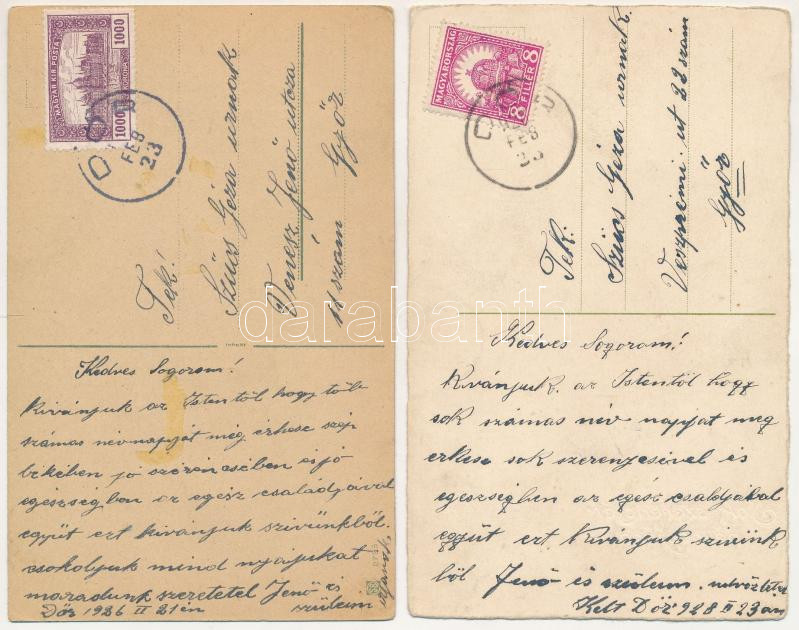 MAGYAR KIR. POSTA
1000
1000
KORONA
FEB
23
Tek!
Szűcs Géza urnak
Jenő utcza
11 szám Győr
Kedves Sogorom!
Kivánjuk az Istentől hogy több
számas névnapját még érhese szép
békében jó szerencsében és jó
egészségben az egész családjával
együt ezt kivánjuk szivünkből.
csokolyuk mind nyájukat
maradunk szeretetel Jenő és
szüleim
Dör 1926 II 21én
MAGYARORSZÁG
8 FILLÉR 8
FEB
23
Tek:
Szücs Géza urnak.
Veszprémi ut 22 szám
Győr
Kedves Sogorom!
Kivánjuk az Istentöl hogy
sok számas név napjat meg
erkese sok szerenjesivel és
egeszségben az egész csaldjával
együt ezt Kivánjuk szivünk
ből Jenő és szüleim
Kelt Dör 928 II 23án
darabanth